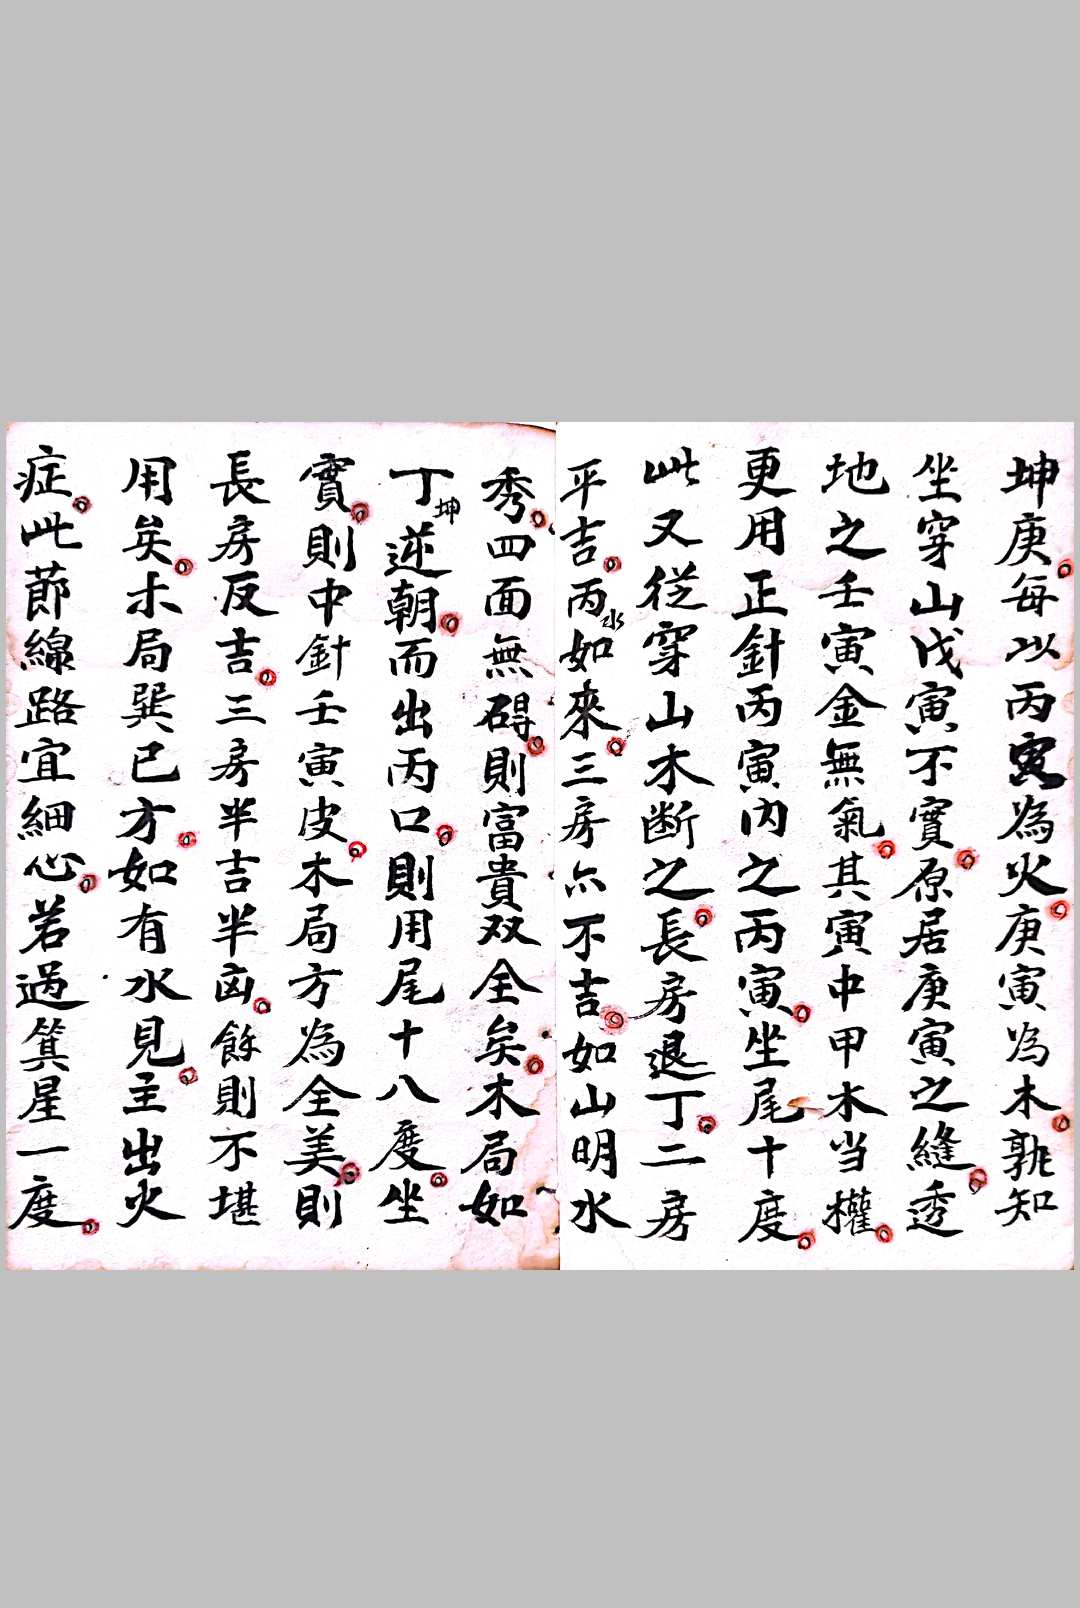 坤庚每以丙寅為火庚寅为木孰知
坐穿山戊寅不實原居庚寅之縫透
地之壬寅金無氣其寅中甲木当權
更用正針丙寅内之丙寅坐尾十度
此又従穿山木断之長房退丁二房
平吉丙水如來三房亦不吉如山明水
秀四面無碍則富貴双全矣木局如
丁坤逆朝而出丙口則用尾十八度坐
實則中針壬寅皮木局方為全美則
長房反吉三房半吉半凶餘則不堪
用矣木局巽巳方如有水見主出火
症此節線路宜細心若過箕星一度